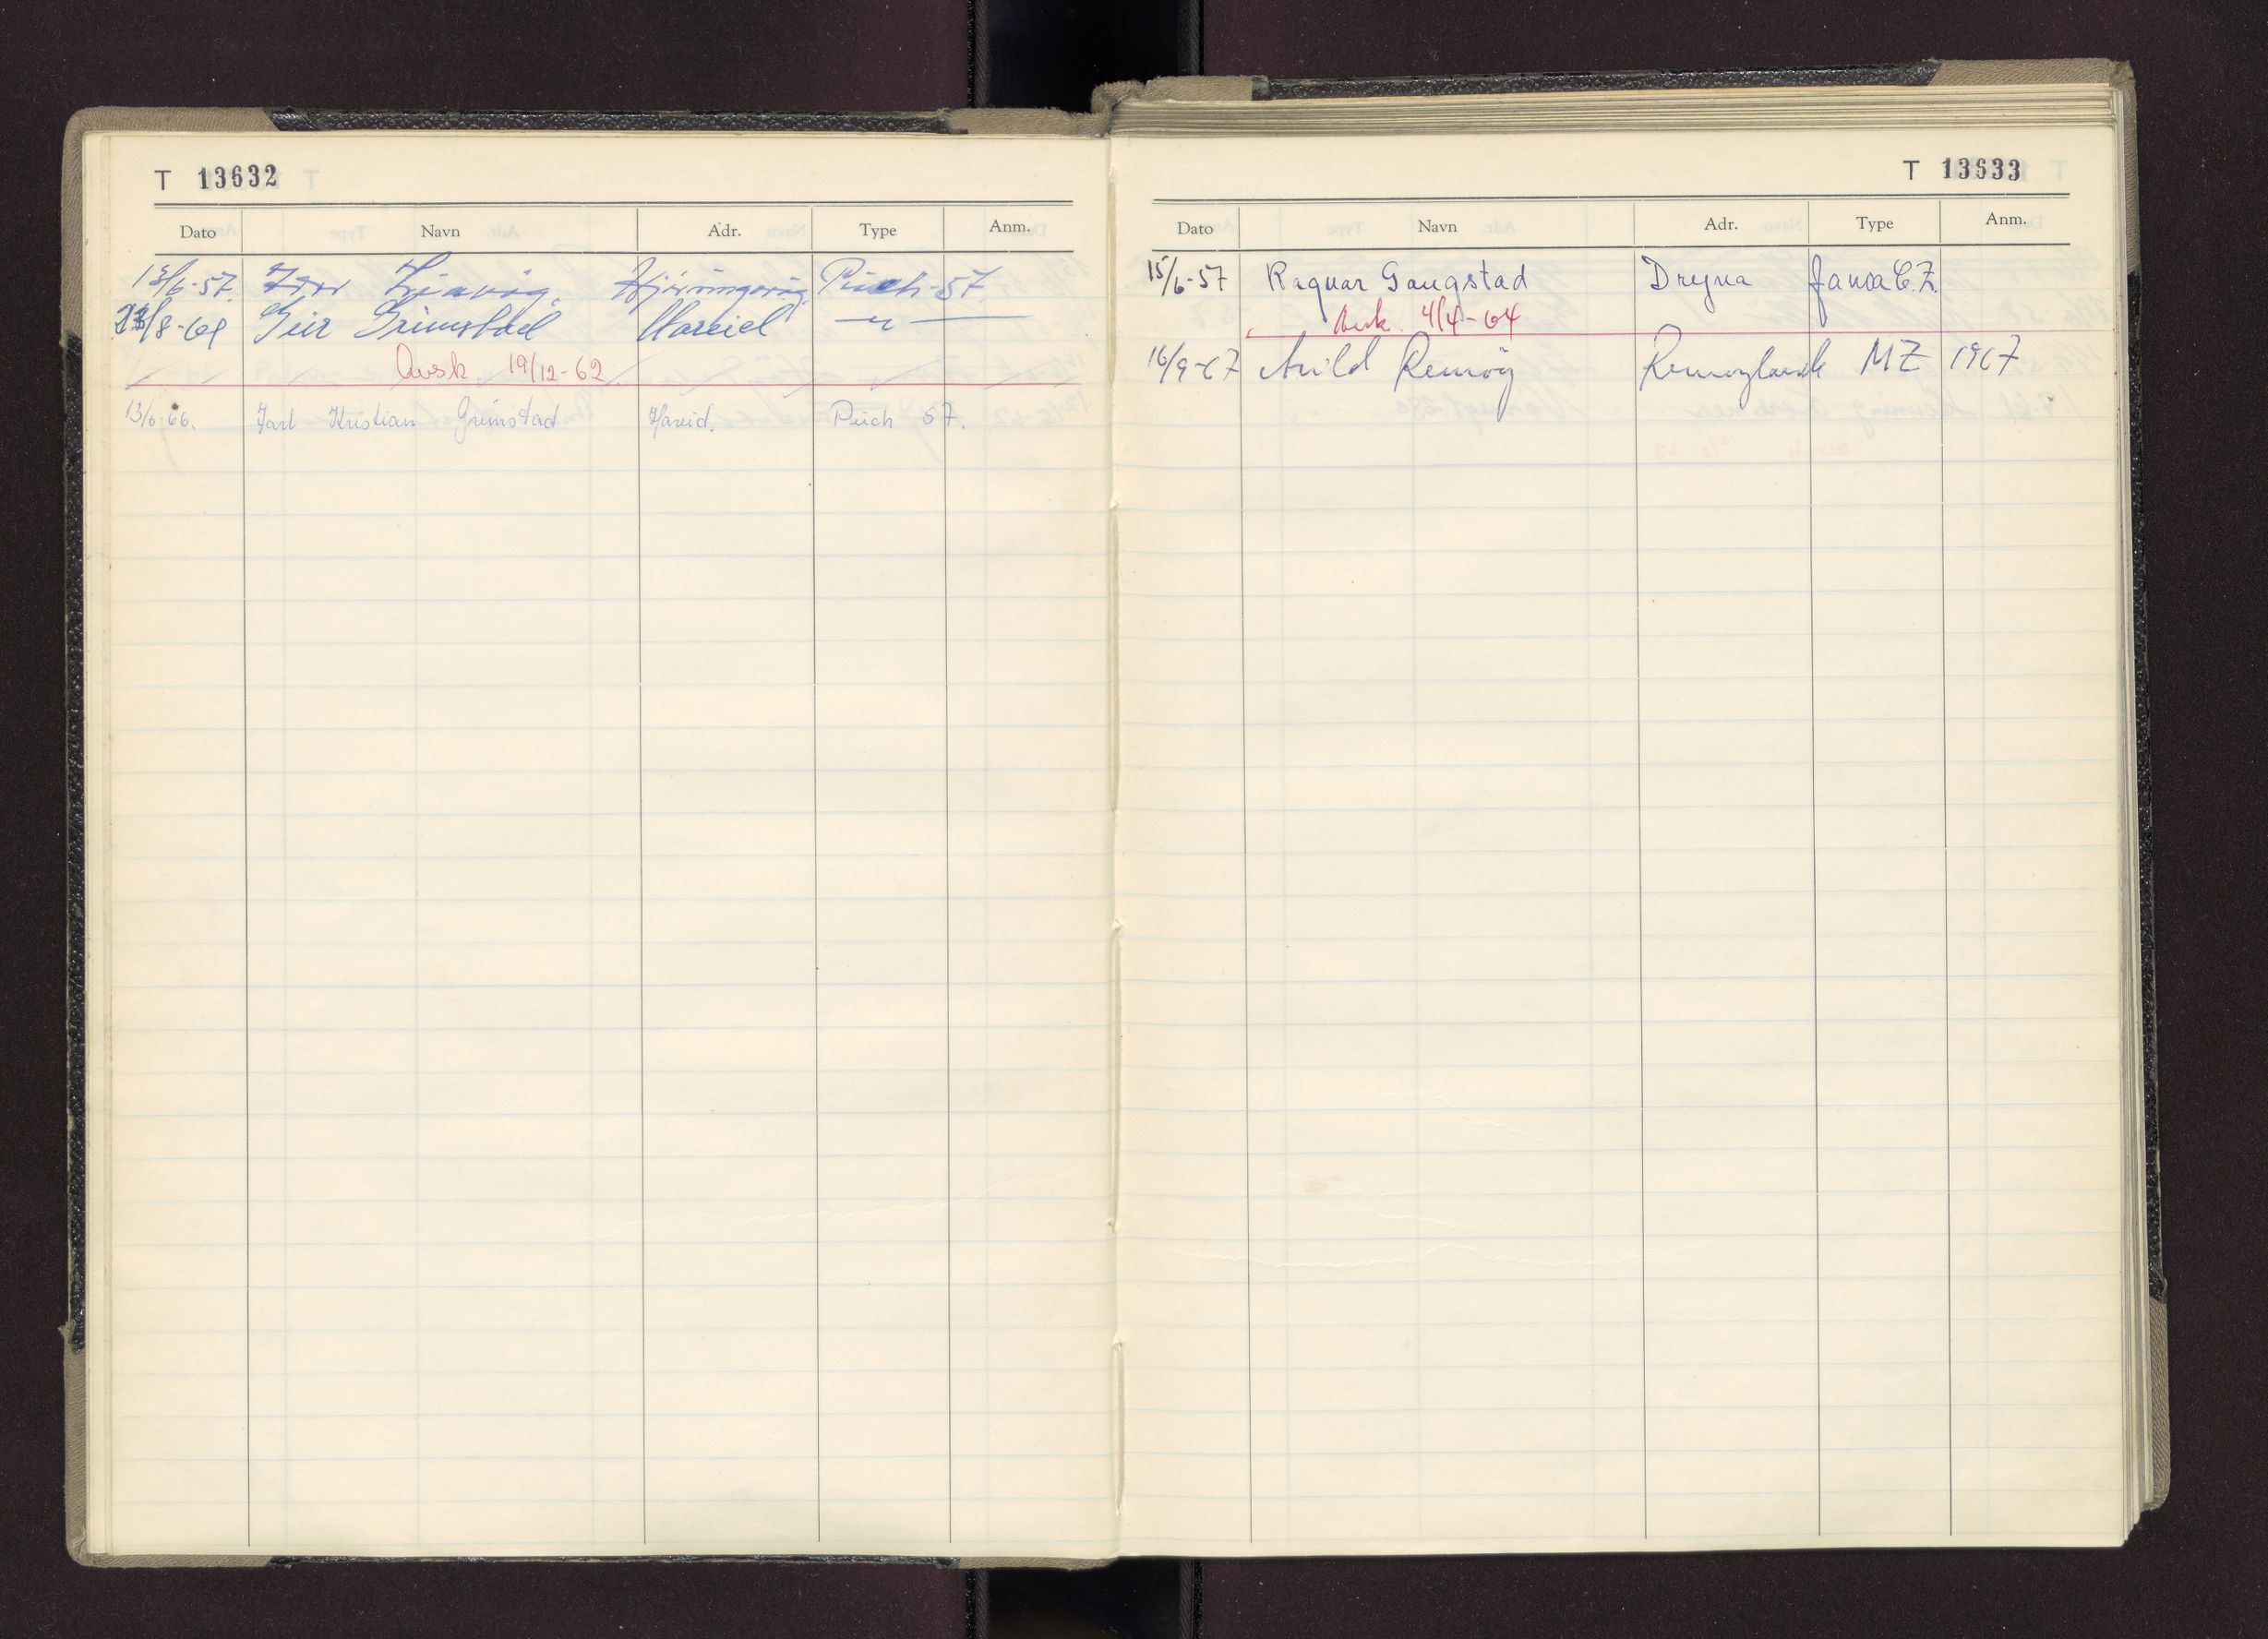 T 13632
Dato Navn Adr. Type Anm.
13/6-57. Liavåg, Hjörungavåg Puch-57.
23/8-61 Geir Grimstad Hareid — " —
Avsk. 19/12-62
13/6-66. Jarl Kristian Grimstad Hareid. Puch 57.
T 13633
Dato Navn Adr. Type Anm.
15/6-57 Ragnar Gangstad Dryna Jawa C.Z.
Avsk. 4/4-64
16/9-67 Arild Remöy Remøylandet MZ 1967